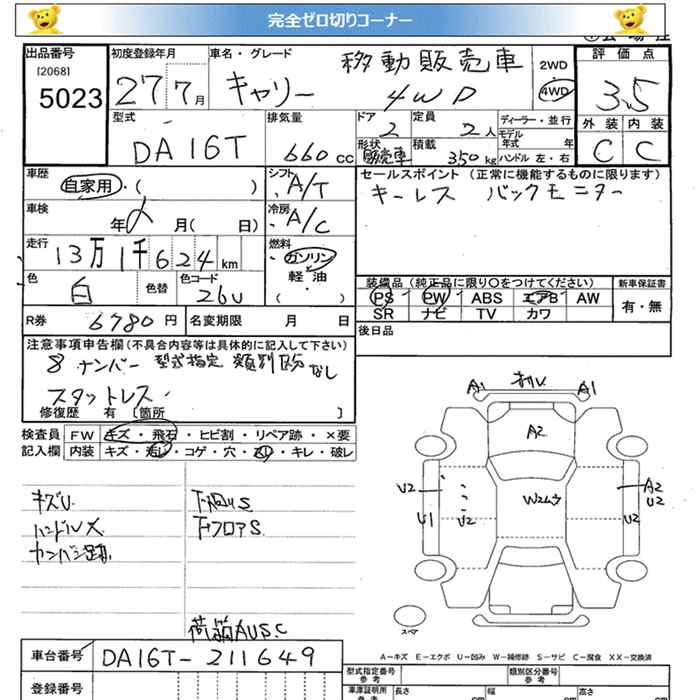 完全ゼロ切りコーナー
出品番号
[2068]
5023
初度登録年月
27 7月
車名・グレード
キャリー 移動販売車
4WD
2WD
4WD
評価点
3.5
外装 内装
C C
型式
DA16T
排気量
660cc
ドア
2
定員
2人
形状
販売車
積載
350kg
ディーラー・並行
モデル年式 年
ハンドル 左・右
車歴
自家用・( )
シフト
A/T
車検
年 月( 日)
冷房
A/C
走行
13万1千624km
燃料
ガソリン
軽油
( )
色
白
色替
色コード
26U
セールスポイント (正常に機能するものに限ります)
キーレス バックモニター
装備品 (純正品に限り〇をつけてください)
PS PW ABS エアB AW
SR ナビ TV カワ
新車保証書
有・無
R券
6780円
名変期限 月 日
後日品
注意事項申告欄(不具合内容等は具体的に記入して下さい)
8ナンバー 型式指定 類別区分なし
スタットレス
修復歴 有 〔箇所 〕
検査員
記入欄
FW キズ・飛石・ヒビ割・リペア跡・×要
内装 キズ・汚レ・コゲ・穴・スリ・キレ・破レ
キズU
ハンドルス
下廻りS
下フロアS
A1 A1
A2
U2 U2 W2ムラ A2
U2
U1 U2
スペア
A-キズ E-エクボ U-凹み W-補修跡 S-サビ C-腐食 XX-交換済
車台番号
DA16T-211649
登録番号
型式指定番号
参考
類別区分番号
参考
車庫証明所
参考
長さ
cm
幅
cm
高さ
cm